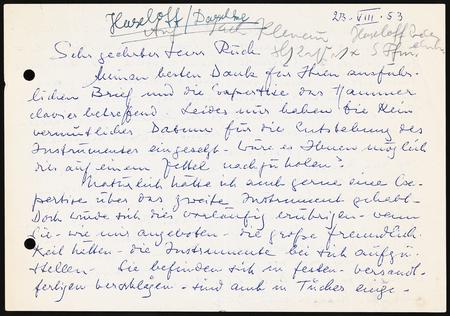 Haseloff /
23-VIII. 53
Sehr geehrter Herr Rück
Meinen besten Dank für Ihren ausführ-
lichen Brief und die Expertise das Hammer
clavier betreffend. Leider nur haben Sie kein
vermutliches Datum für die Entstehung des
Instrumentes eingesetzt - wäre es Ihnen möglich
dies auf einem Zettel nachzuholen?
Natürlich hätte ich auch gerne eine Ex-
pertise über das zweite Instrument gehabt -
Doch würde sich dies vorläufig erübrigen - wenn
Sie - wie mir angeboten - die große Freundlich-
keil hätten - die Instrumente bei sich aufzu-
stellen - Sie befinden sich in festen - versand-
fertigen Verschlägen - sind auch in Tücher einge-